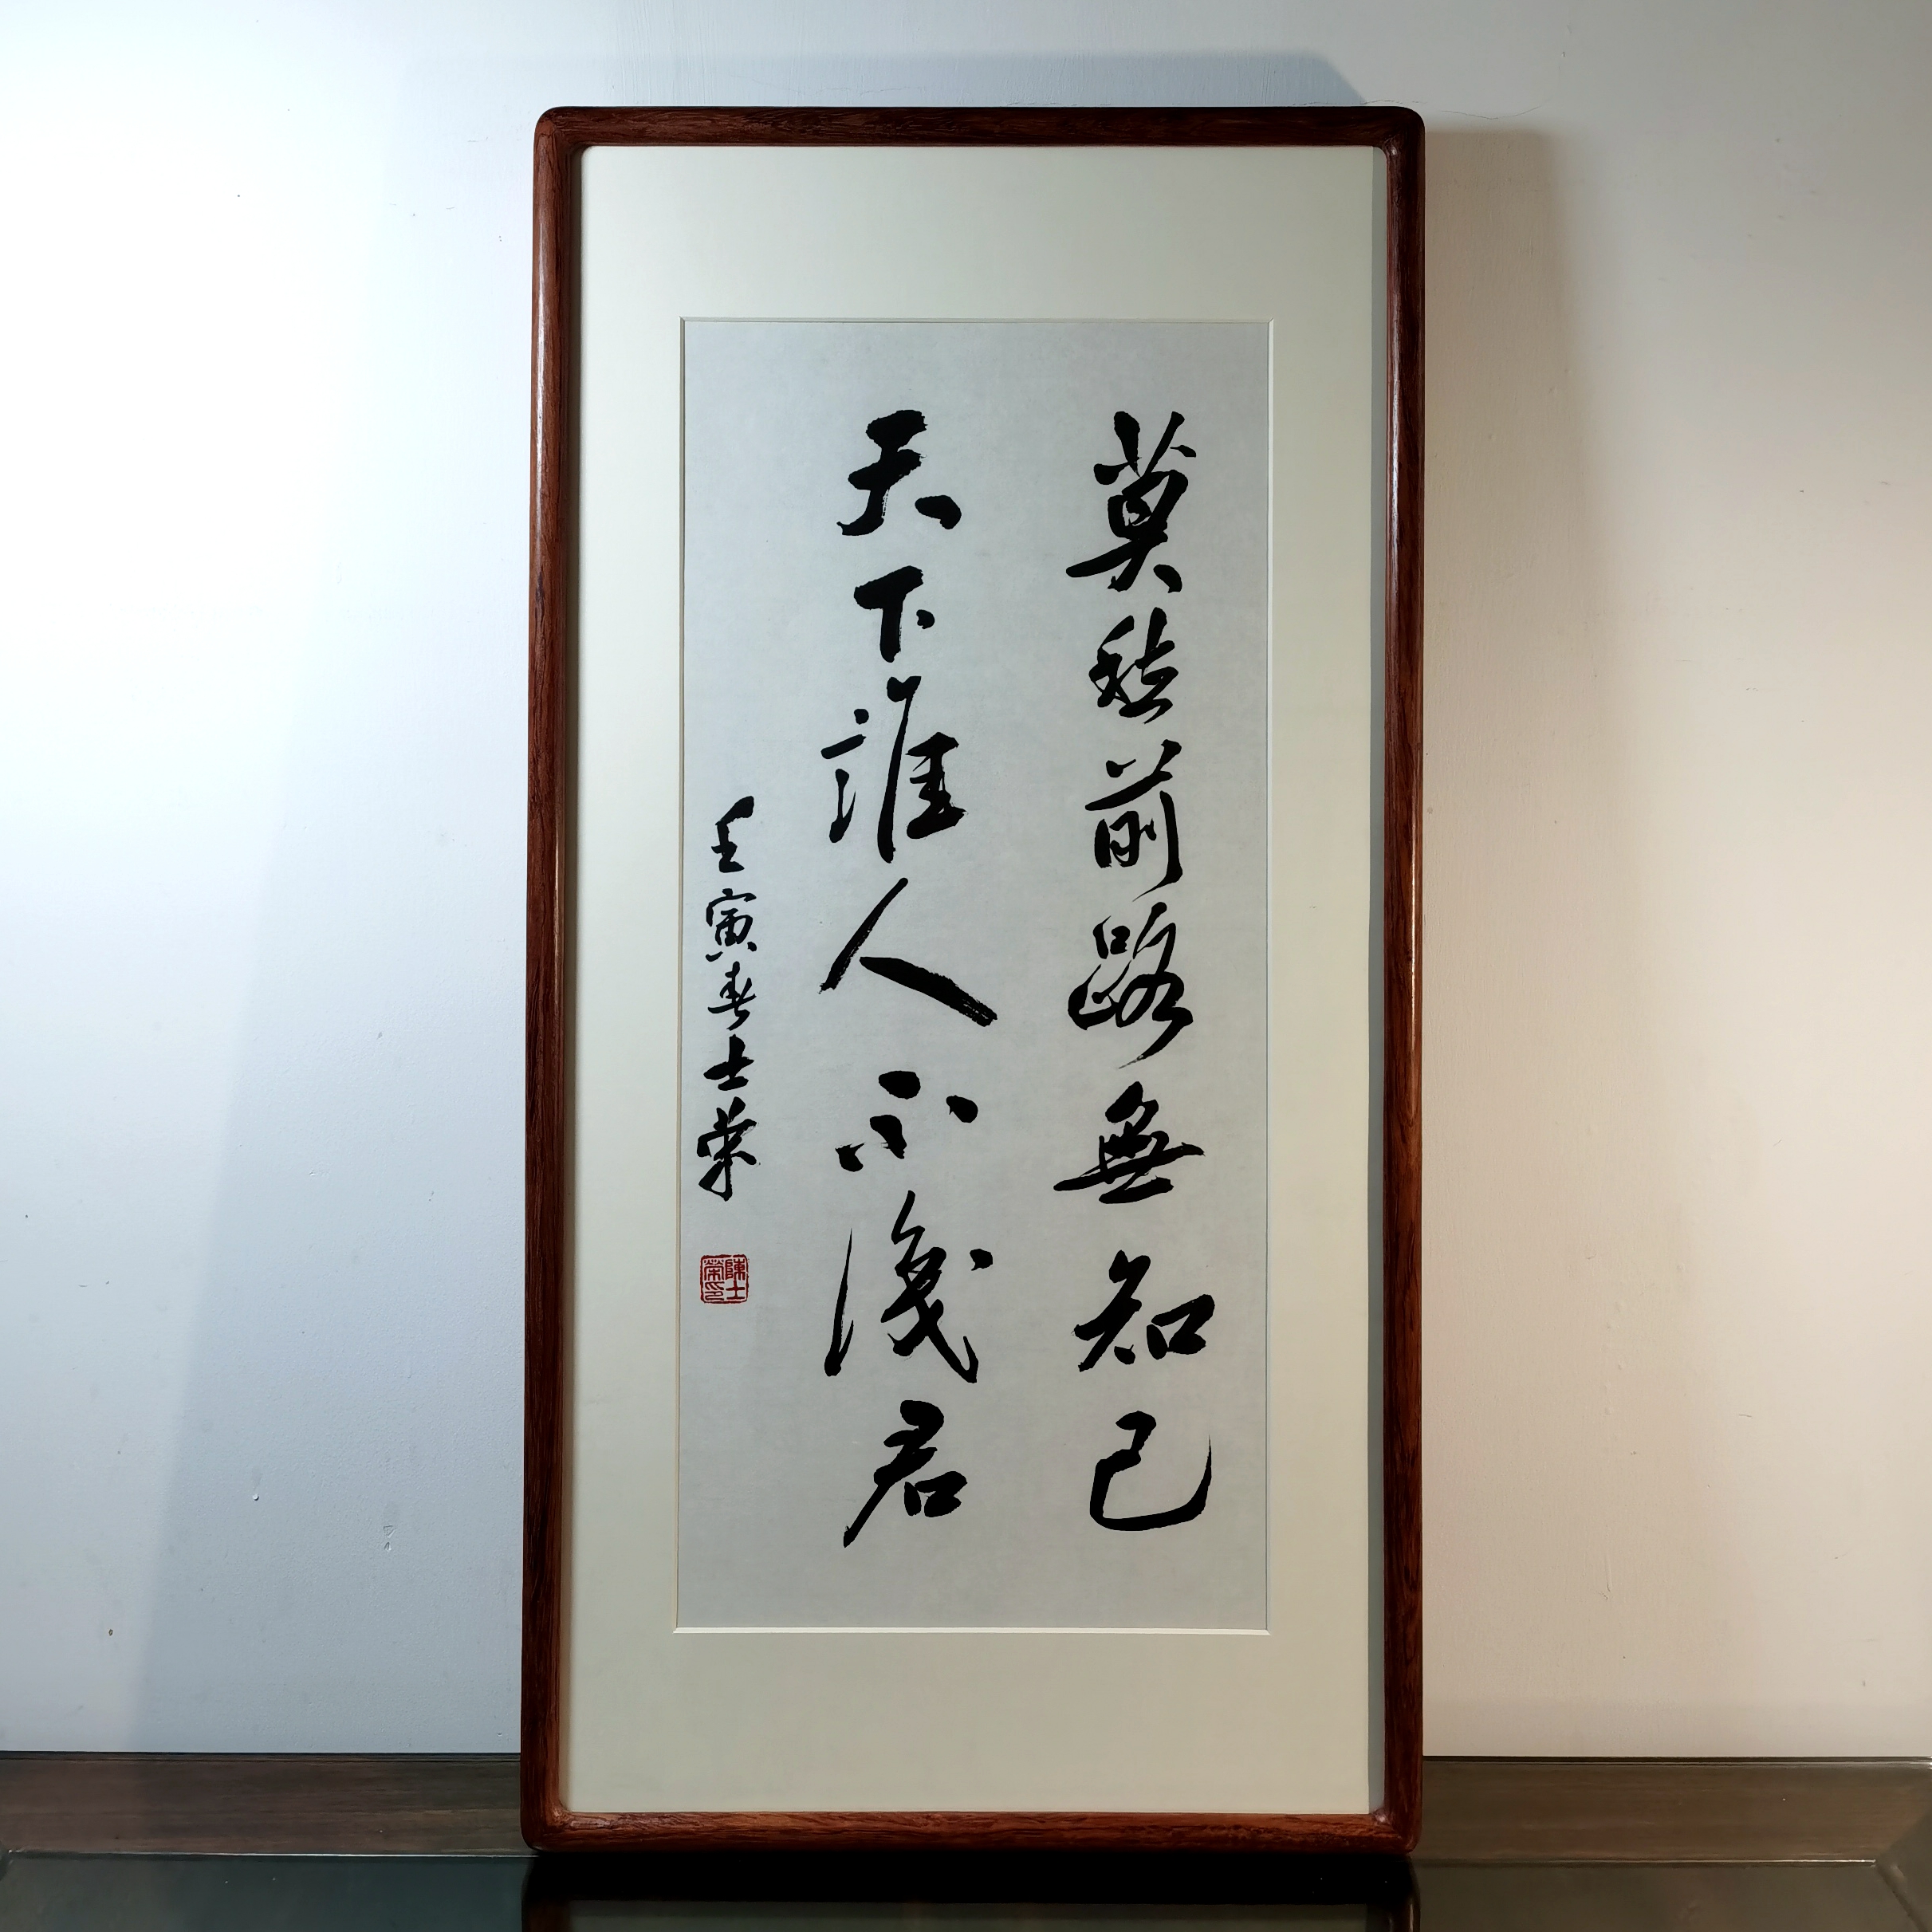 莫愁前路無知己
天下誰人不識君
壬寅春士荣
陳士榮印